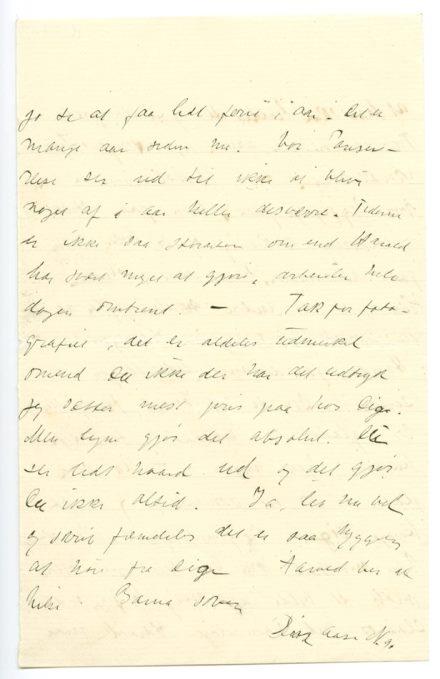 jo se at faa lidt ferie i aar. Det er
mange aar siden nu. Vor
ser ud til ikke at blive
noget af i aar heller desværre. Tiderne
er ikke saa omend
har svært meget at gjøre, arbeider hele
dagen omtrent. — Tak for foto-
grafiet, det er aldeles udmerket
omend Du ikke der har det udtryk
jeg sætter mest pris paa hos Dig.
Men ligne gjør det absolut. Du
ser lidt haard ud og det gjør
Du ikke altid. Ja, lev nu vel
og skriv fremdeles det er saa hyggelig
at høre fra Dig. ber at
hilse
Din Aase